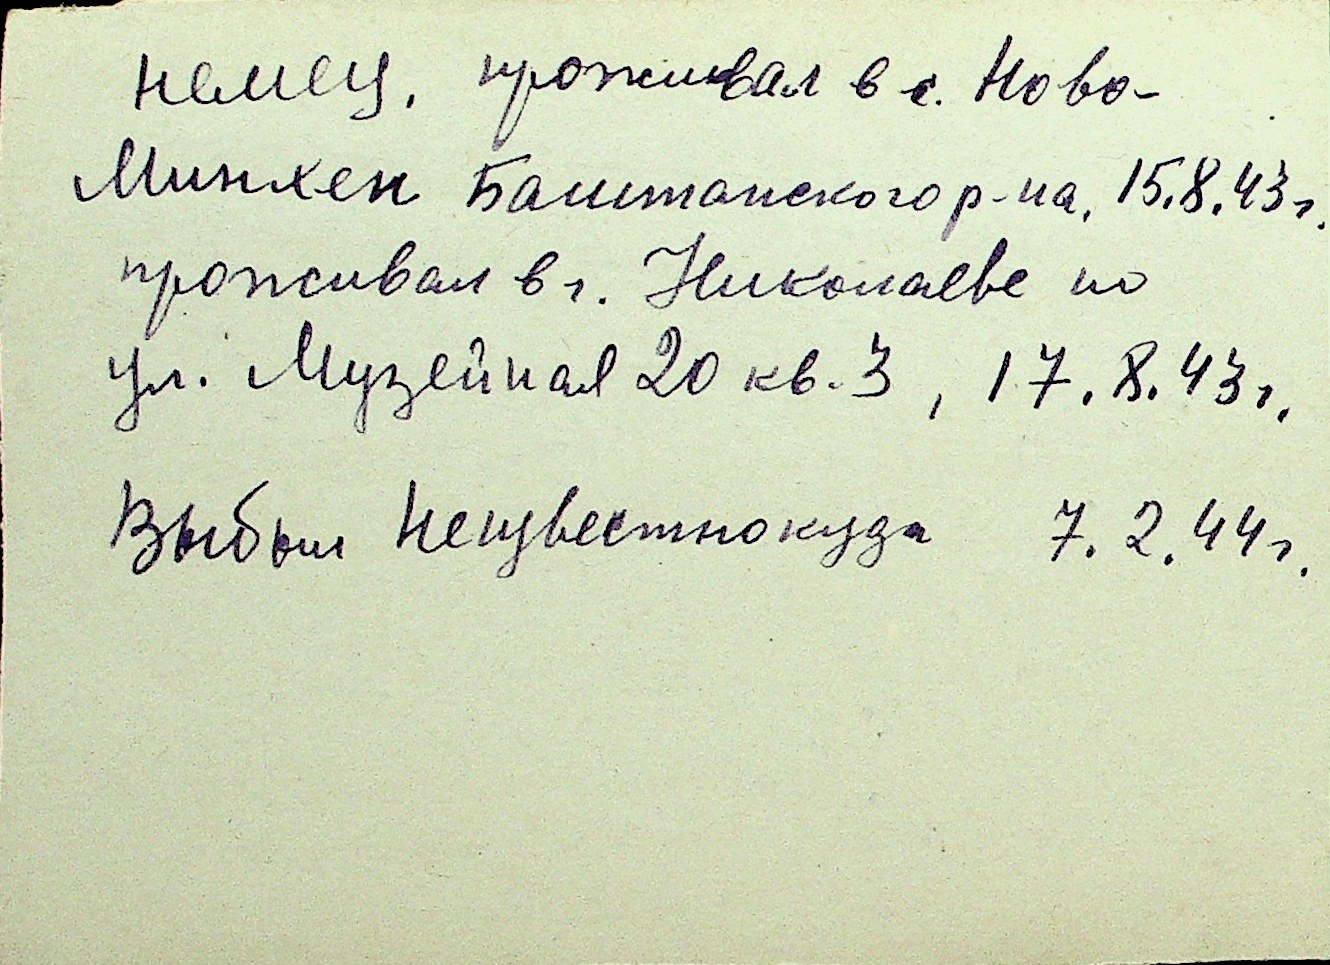 немец, проживал в с. Ново-
Минхен Баштанского р-на, 15.8.43г.
проживал в г. Николаеве по
ул. Музейная 20 кв. 3, 17.8.43г.
Выбыл неизвестно куда 7.2.44г.